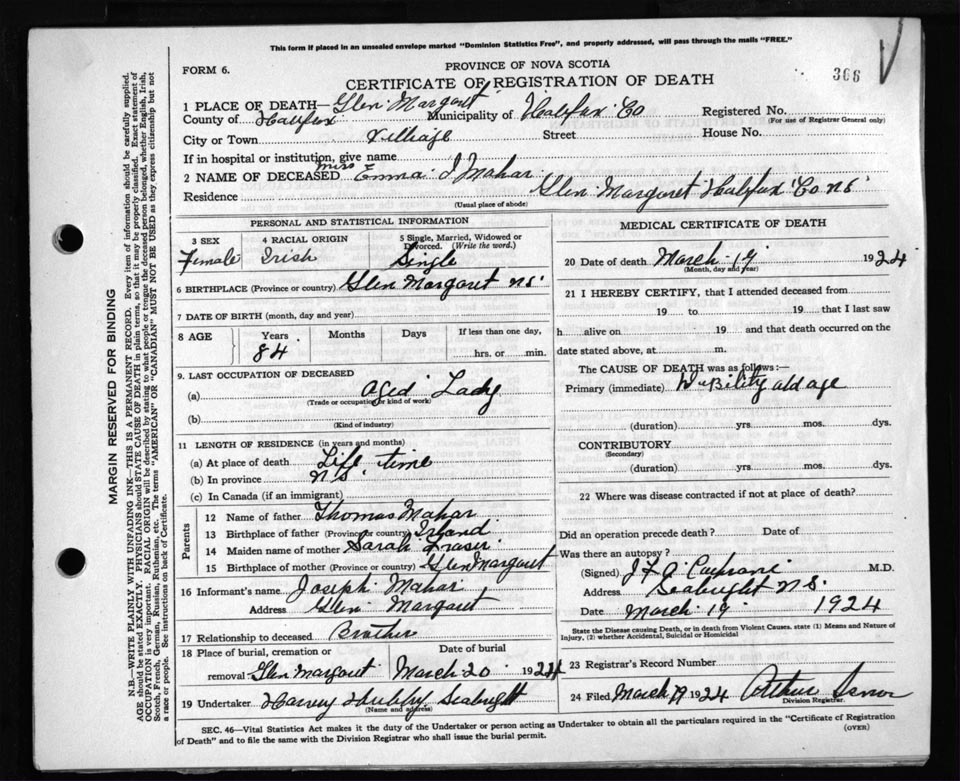 This form if placed in an unsealed envelope marked "Dominion Statistics Free", and properly addressed, will pass through the mails "FREE."
FORM 6.
PROVINCE OF NOVA SCOTIA
CERTIFICATE OF REGISTRATION OF DEATH
366
1 PLACE OF DEATH— Glen Margaret
County of Halifax Municipality of Halifax Co Registered No.
(For use of Registrar General only)
City or Town Village Street House No.
If in hospital or institution, give name
2 NAME OF DECEASED Miss Emma I Mahar
Residence Glen Margaret Halifax Co NS
(Usual place of abode)
PERSONAL AND STATISTICAL INFORMATION
3 SEX 4 RACIAL ORIGIN 5 Single, Married, Widowed or Divorced. (Write the word.)
Female Irish Single
6 BIRTHPLACE (Province or country) Glen Margaret NS
7 DATE OF BIRTH (month, day and year)
8 AGE Years Months Days If less than one day,
84 hrs. or min.
9. LAST OCCUPATION OF DECEASED
(a) Aged Lady
(Trade or occupation or kind of work)
(b)
(Kind of industry)
11 LENGTH OF RESIDENCE (in years and months)
(a) At place of death Life time
(b) In province NS
(c) In Canada (if an immigrant)
Parents
12 Name of father Thomas Mahar
13 Birthplace of father (Province or country) Irland
14 Maiden name of mother Sarah Fraser
15 Birthplace of mother (Province or country) Glen Margaret
16 Informant's name Joseph Mahar
Address Glen Margaret
17 Relationship to deceased Brother
18 Place of burial, cremation or Date of burial
removal Glen Margaret March 20 1924
19 Undertaker Harvey Hubley Seabright
(Name and address)
MEDICAL CERTIFICATE OF DEATH
20 Date of death March 19 1924
(Month, day and year)
21 I HEREBY CERTIFY, that I attended deceased from
19 to 19 that I last saw
h alive on 19 and that death occurred on
date stated above, at m.
The CAUSE OF DEATH was as follows:—
Primary (immediate) DeBility old age
(duration) yrs. mos. dys.
CONTRIBUTORY
(Secondary)
(duration) yrs. mos. dys.
22 Where was disease contracted if not at place of death?
Did an operation precede death? Date of
Was there an autopsy?
(Signed) J L Cochrane M.D.
Address Seabright NS
Date March 19 1924
State the Disease causing Death, or in death from Violent Causes. state (1) Means and Nature of Injury, (2) whether Accidental, Suicidal or Homicidal
23 Registrar's Record Number
24 Filed March 19 1924 Arthur
Division Registrar.
SEC. 46—Vital Statistics Act makes it the duty of the Undertaker or person acting as Undertaker to obtain all the particulars required in the "Certificate of Registration
of Death" and to file the same with the Division Registrar who shall issue the burial permit.
(OVER)
MARGIN RESERVED FOR BINDING
N.B.—WRITE PLAINLY WITH UNFADING INK—THIS IS A PERMANENT RECORD. Every item of information should be carefully supplied.
AGE should be stated EXACTLY. PHYSICIANS should STATE CAUSE OF DEATH in plain terms, so that it may be properly classified. Exact statement of
OCCUPATION is very important. RACIAL ORIGIN will be described by stating to what people or tongue the deceased person belonged, whether English, Irish,
Scotch, French, German, Russian, Ruthenian, etc. The terms "AMERICAN" OR "CANADIAN" MUST NOT BE USED as they express citizenship but not
a race or people. See instructions on back of Certificate.